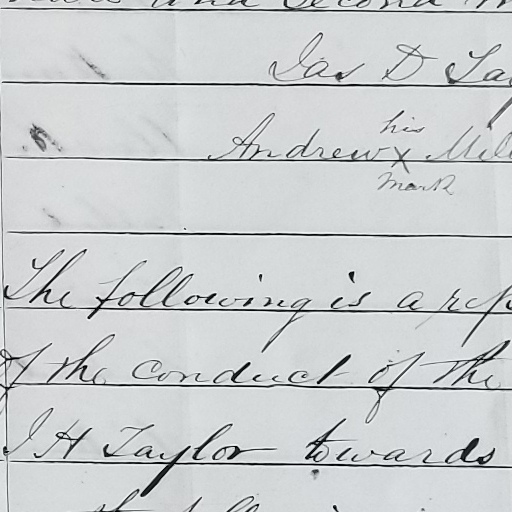 and Second
Jas D
his
Andrew X
mark
The following is a
of the conduct of the
J H Taylor towards